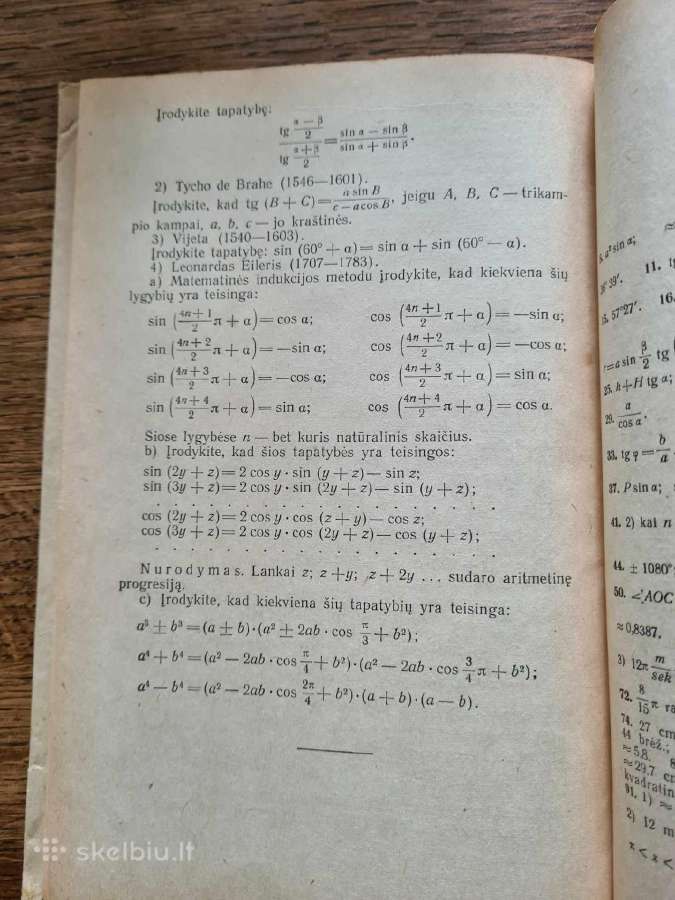 Įrodykite tapatybę:
tg (α — β)/2 / tg (α + β)/2 = (sin α — sin β)/(sin α + sin β).
2) Tycho de Brahe (1546—1601).
Įrodykite, kad tg (B + C) = (a sin B)/(c — a cos B), jeigu A, B, C — trikam-
pio kampai, a, b, c — jo kraštinės.
3) Vijeta (1540—1603).
Įrodykite tapatybę: sin (60° + α) = sin α + sin (60° — α).
4) Leonardas Eileris (1707—1783).
a) Matematinės indukcijos metodu įrodykite, kad kiekviena šių
lygybių yra teisinga:
sin ((4n + 1)/2 π + α) = cos α; cos ((4n + 1)/2 π + α) = —sin α;
sin ((4n + 2)/2 π + α) = —sin α; cos ((4n + 2)/2 π + α) = —cos α;
sin ((4n + 3)/2 π + α) = —cos α; cos ((4n + 3)/2 π + α) = sin α;
sin ((4n + 4)/2 π + α) = sin α; cos ((4n + 4)/2 π + α) = cos α.
Šiose lygybėse n — bet kuris natūralinis skaičius.
b) Įrodykite, kad šios tapatybės yra teisingos:
sin (2y + z) = 2 cos y · sin (y + z) — sin z;
sin (3y + z) = 2 cos y · sin (2y + z) — sin (y + z);
. . . . . . . . . . . . . . . . . . . .
cos (2y + z) = 2 cos y · cos (z + y) — cos z;
cos (3y + z) = 2 cos y · cos (2y + z) — cos (y + z);
. . . . . . . . . . . . . . . . . . . .
Nurodymas. Lankai z; z + y; z + 2y ... sudaro aritmetinę
progresiją.
c) Įrodykite, kad kiekviena šių tapatybių yra teisinga:
a³ ± b³ = (a ± b) · (a² ± 2ab · cos π/3 + b²);
a⁴ + b⁴ = (a² — 2ab · cos π/4 + b²) · (a² — 2ab · cos 3/4 π + b²);
a⁴ — b⁴ = (a² — 2ab · cos 2π/4 + b²) · (a + b) · (a — b).
skelbiu.lt
11. tg
57°27′. 16.
= a sin β/2 tg
25. h + H tg α;
29. a/cos α.
33. tg φ = b/a
37. P sin α;
41. 2) kai n
44. ± 1080°
50. ∠AOC
≈ 0,8387,
3) 12π m/sek
72. 8/15 π ra
74. 27 cm
44 brėž.;
≈ 5,8. 8
≈ 29,7 cm
kvadratin
91. 1) ≈
2) 12 m